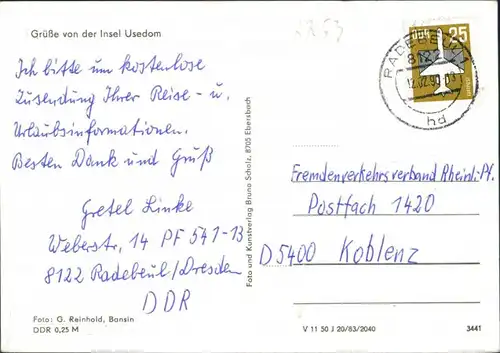 Grüße von der Insel Usedom
Ich bitte um kostenlose
Zusendung Ihrer Reise- u.
Urlaubsinformationen.
Besten Dank und Gruß
Gretel Linke
Weberstr. 14 PF 541-13
8122 Radebeul/Dresden
DDR
Foto: G. Reinhold, Bansin
DDR 0,25 M
Foto und Kunstverlag Bruno Scholz, 8705 Ebersbach
DDR 25
RADEBEUL 1
8122
12.02.90
hd
Fremdenverkehrsverband Rheinl.-Pf.
Postfach 1420
D5400 Koblenz
V 11 50 J 20/83/2040
3441